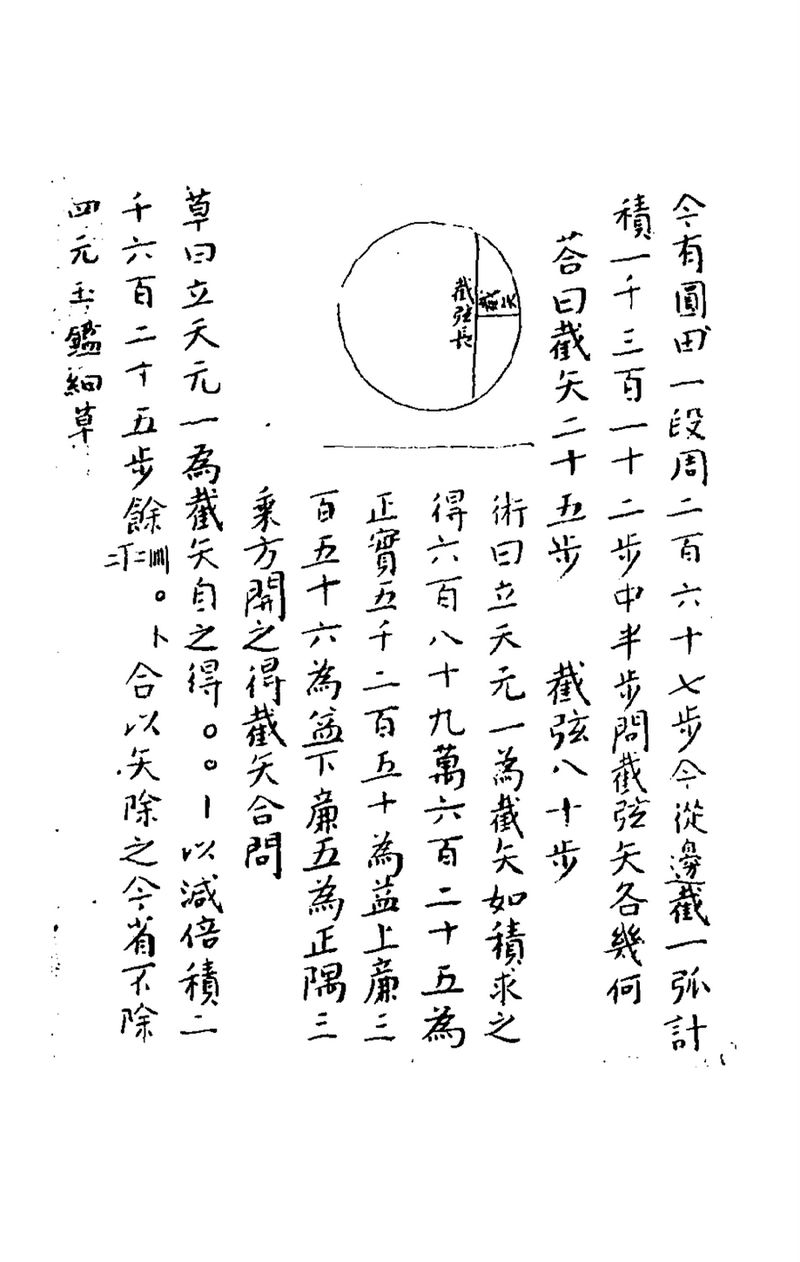 今有圓田一段周二百六十七步今從邊截一弧計
積一千三百一十二步中半步問截弦矢各幾何
荅曰截矢二十五步　截弦八十步
術曰立天元一為截矢如積求之
得六百八十九萬六百二十五為
正實五千二百五十為益上廉三
百五十六為益下廉五為正隅三
乗方開之得截矢合問
截弦長
截矢
草曰立天元一為截矢自之得〇〇丨以減倍積二
千六百二十五步餘〇卜合以矢除之今省不除
四元玉鑑細草